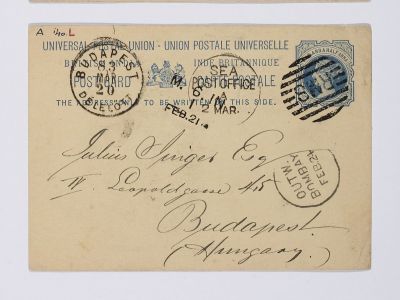 A 140.L
UNIVERSAL POSTAL UNION - UNION POSTALE UNIVERSELLE
BRITISH INDIA INDE BRITANNIQUE
POST CARD CARTE POSTALE
THE ADDRESS ONLY TO BE WRITTEN ON THIS SIDE.
BUDAPEST
83
MAR
20
DELELŐTT
SEA
POST OFFICE
A
2 MAR.
M.
FEB.21
OUTW.
BOMBAY
FEB
B
Julius Singer Esq
IV. Leopoldgasse
Budapest
(Hungary.)